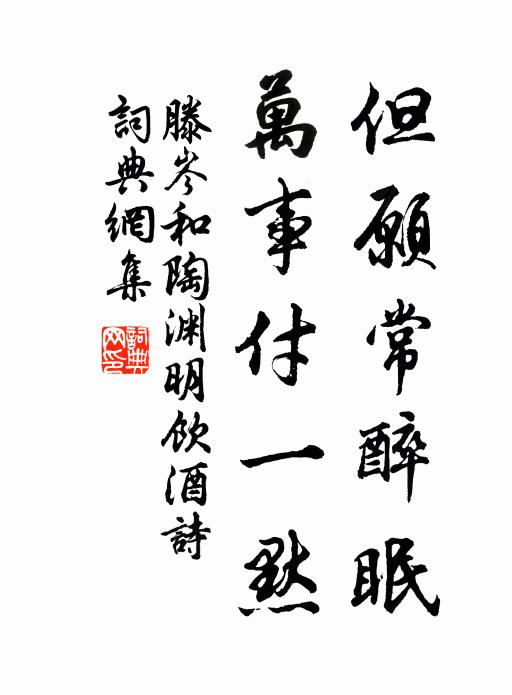 但願常醉眠
萬事付一默
滕岑和陶渊明飲酒詩
詞典網集
詞典
网印